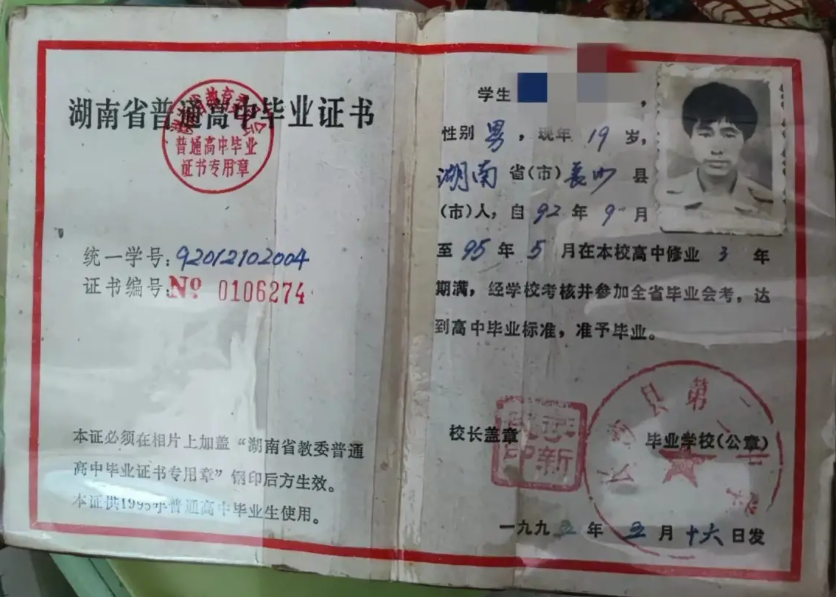 湖南省普通高中毕业证书
普通高中毕业
证书专用章
统一学号:92012102004
证书编号:№ 0106274
本证必须在相片上加盖“湖南省教委普通
高中毕业证书专用章”钢印后方生效。
本证供1995年普通高中毕业生使用。
学生 ,
性别 男 ,现年 19 岁,
湖南 省(市) 长沙 县
(市)人,自 92 年 9 月
至 95 年 5 月在本校高中修业 3 年
期满,经学校考核并参加全省毕业会考,达
到高中毕业标准,准予毕业。
校长盖章
毕业学校(公章)
一九九 五 年 五 月 十六 日发